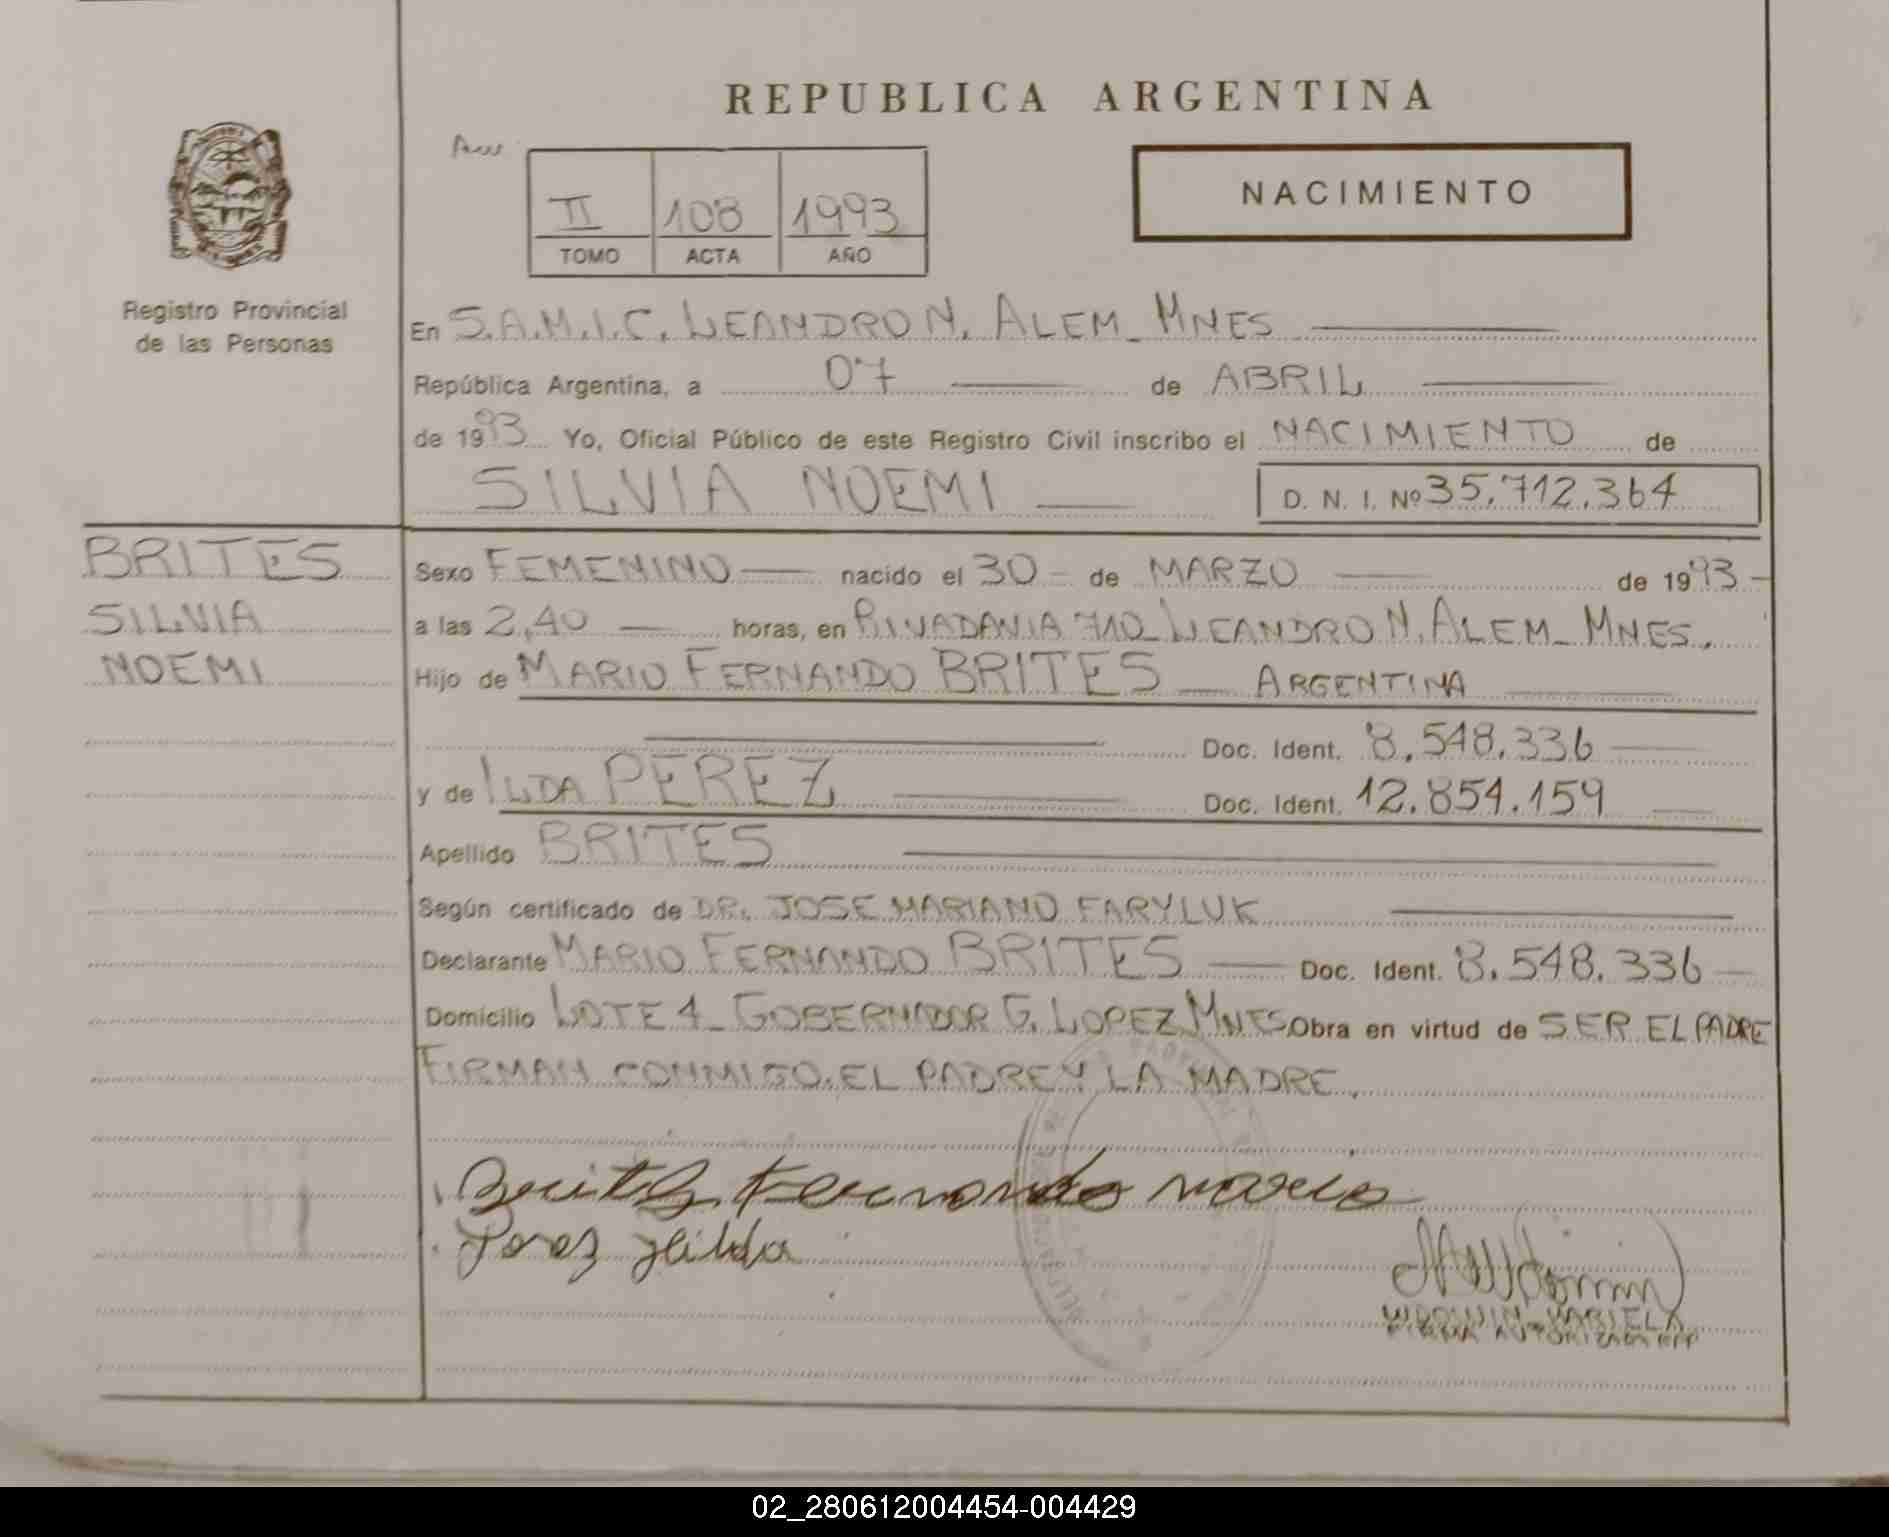 REPUBLICA ARGENTINA
NACIMIENTO
II 108 1993
TOMO ACTA AÑO
Registro Provincial
de las Personas
En S.A.M.I.C. LEANDRO N. ALEM_MNES
República Argentina, a 07 de ABRIL
de 1993 Yo, Oficial Público de este Registro Civil inscribo el NACIMIENTO de
SILVIA NOEMI D. N. I. Nº 35.712.364
BRITES
SILVIA
NOEMI
Sexo FEMENINO nacido el 30 de MARZO de 1993
a las 2,40 horas, en RIVADAVIA 710_LEANDRO N. ALEM_MNES.
Hijo de MARIO FERNANDO BRITES ARGENTINA
Doc. Ident. 8.548.336
y de ILDA PEREZ Doc. Ident. 12.854.159
Apellido BRITES
Según certificado de DR. JOSE MARIANO FARYLUK
Declarante MARIO FERNANDO BRITES Doc. Ident. 8.548.336
Domicilio LOTE 4_GOBERNADOR G. LOPEZ MNES Obra en virtud de SER EL PADRE
FIRMAN CONMIGO. EL PADRE Y LA MADRE.
Britez Fernando Mario
Perez Hilda
MARIELA
FIRMA AUTORIZADA
02_280612004454-004429